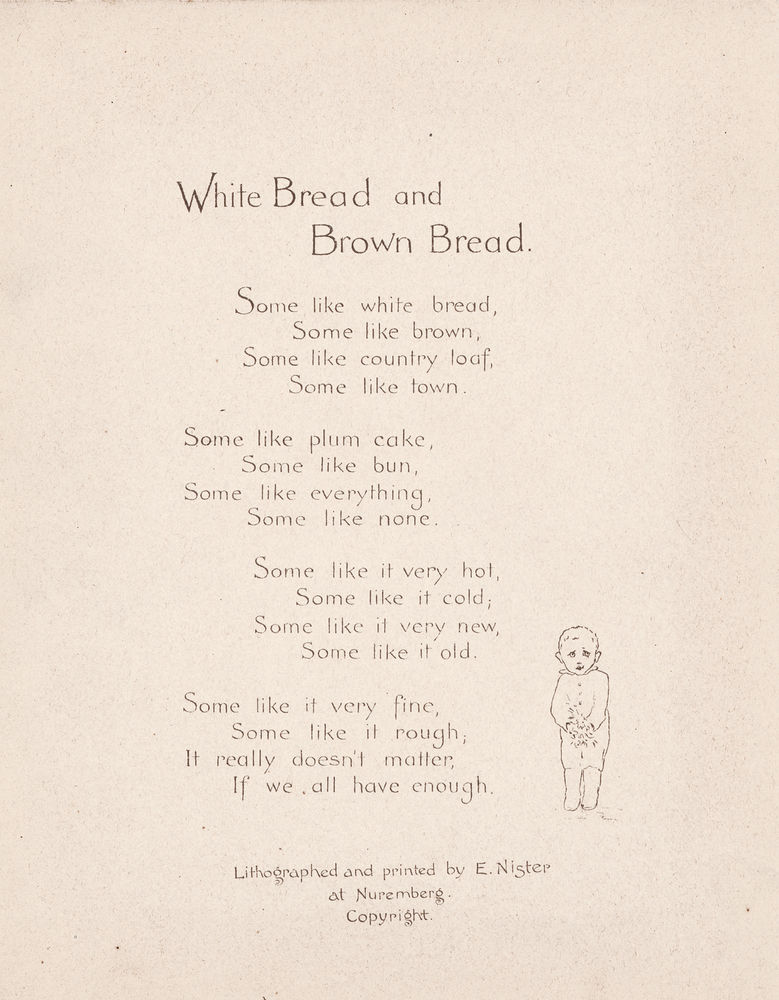 White Bread and
Brown Bread.
Some like white bread,
Some like brown,
Some like country loaf,
Some like town.
Some like plum cake,
Some like bun,
Some like everything,
Some like none.
Some like it very hot,
Some like it cold;
Some like it very new,
Some like it old.
Some like it very fine,
Some like it rough;
It really doesn't matter,
If we all have enough.
Lithographed and printed by E. Nister
at Nuremberg.
Copyright.